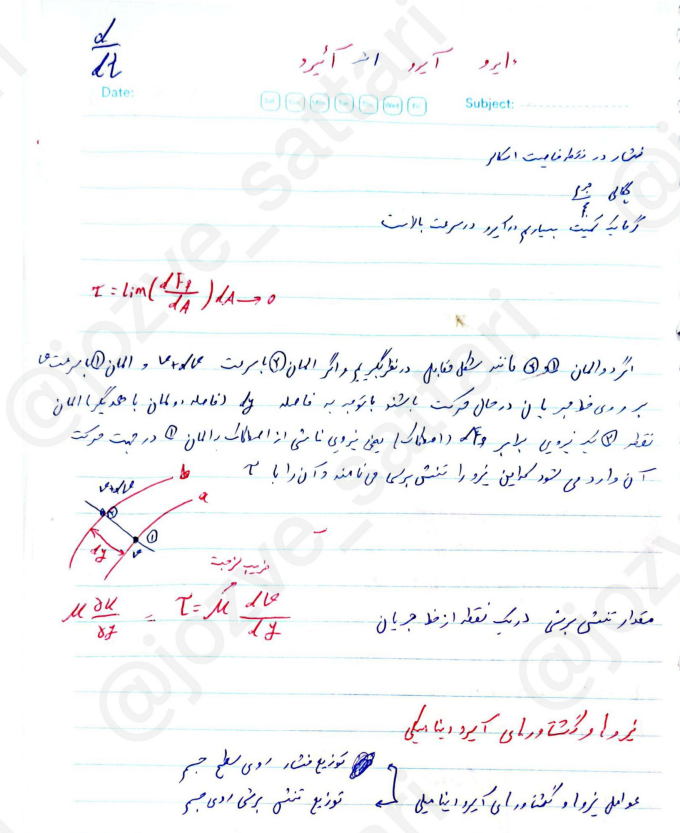 d/dt
دایرو آیرو اثر آئیرو
Date: Sat Sun Mon Tue Thu Wed Fri Subject:
فشار در نقطه خاصیت اسکالر
چگالی جرم
دما یک کمیت بسیار مهم در آیرو در سرعت بالاست
τ = lim(dFf/dA) dA→0
اگر دو المان ① و ② مانند شکل مقابل در نظر بگیریم و اگر المان ② با سرعت v+dv و المان ① با سرعت v
بر روی خط جریان در حال حرکت باشند با توجه به فاصله dy (فاصله دو المان با همدیگر) المان
نقطه ② یک نیرویی برابر dFf (اصطکاک) یعنی نیروی ناشی از اصطکاک را المان ① در جهت حرکت
آن وارد می شود که این نیرو را تنش برشی می نامند و آن را با τ
v+dv ② b
a
dy v ①
ضریب لزجت
مقدار تنش برشی در یک نقطه از خط جریان τ = μ dv/dy = μ ∂u/∂y
نیروها و گشتاورهای آیرودینامیکی
عوامل نیروها و گشتاورهای آیرودینامیکی
توزیع فشار روی سطح جسم
توزیع تنش برشی روی جسم
@jozve_sattari